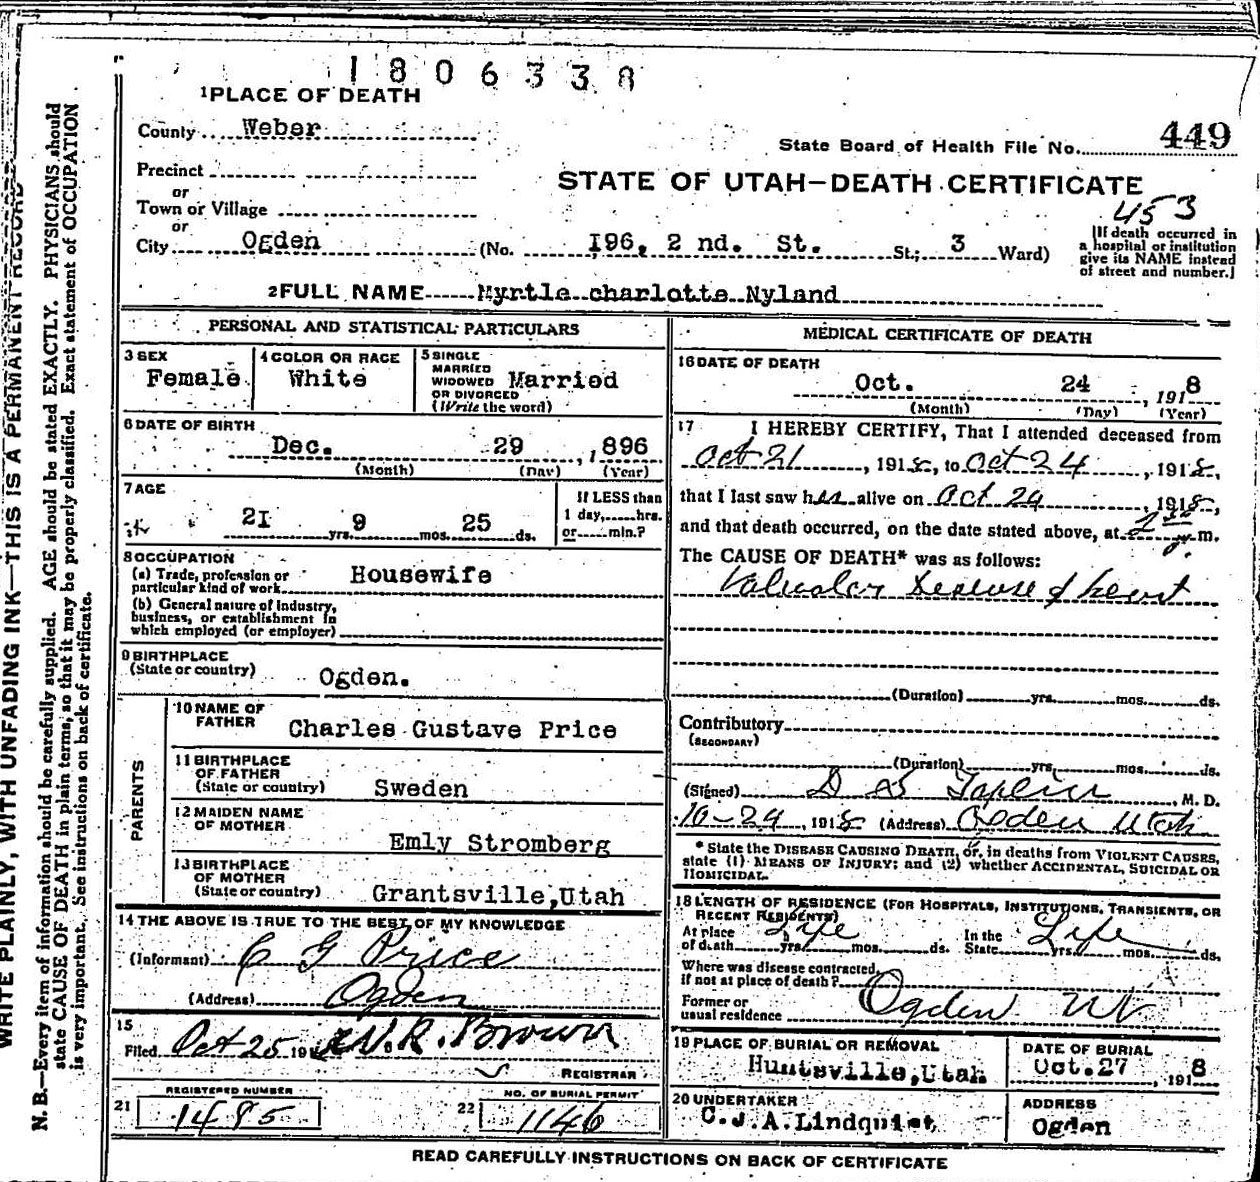 1806338
1 PLACE OF DEATH
County Weber
State Board of Health File No. 449
Precinct
STATE OF UTAH—DEATH CERTIFICATE
or
Town or Village
453
or
City Ogden (No. I96, 2 nd. St. St.; 3 Ward)
[If death occurred in
a hospital or institution
give its NAME instead
of street and number.]
2 FULL NAME Myrtle charlotte Nyland
PERSONAL AND STATISTICAL PARTICULARS
3 SEX
Female
4 COLOR OR RACE
White
5 SINGLE
MARRIED
WIDOWED
OR DIVORCED
(Write the word)
Married
6 DATE OF BIRTH
Dec. 29, 1896
(Month) (Day) (Year)
7 AGE
2I yrs. 9 mos. 25 ds.
If LESS than
1 day,.....hrs.
or.....min.?
8 OCCUPATION
(a) Trade, profession or
particular kind of work Housewife
(b) General nature of industry,
business, or establishment in
which employed (or employer)
9 BIRTHPLACE
(State or country) Ogden.
PARENTS
10 NAME OF
FATHER Charles Gustave Price
11 BIRTHPLACE
OF FATHER
(State or country) Sweden
12 MAIDEN NAME
OF MOTHER Emly Stromberg
13 BIRTHPLACE
OF MOTHER
(State or country) Grantsville,Utah
14 THE ABOVE IS TRUE TO THE BEST OF MY KNOWLEDGE
(Informant) C G Price
(Address) Ogden
15
Filed Oct 25 191 W.R. Brown
REGISTRAR
REGISTERED NUMBER
21 1495
NO. OF BURIAL PERMIT
22 1146
MEDICAL CERTIFICATE OF DEATH
16 DATE OF DEATH
Oct. 24, 1918
(Month) (Day) (Year)
17 I HEREBY CERTIFY, That I attended deceased from
Oct 21, 1918, to Oct 24, 1918,
that I last saw her alive on Oct 24, 1918,
and that death occurred, on the date stated above, at 2 p. m.
The CAUSE OF DEATH* was as follows:
Valvular Disease of heart
(Duration) yrs. mos. ds.
Contributory
(SECONDARY)
(Duration) yrs. mos. ds.
(Signed) D S Taplin, M. D.
10-24, 1918 (Address) Ogden Utah
* State the DISEASE CAUSING DEATH, or, in deaths from VIOLENT CAUSES,
state (1) MEANS OF INJURY; and (2) whether ACCIDENTAL, SUICIDAL OR
HOMICIDAL.
18 LENGTH OF RESIDENCE (FOR HOSPITALS, INSTITUTIONS, TRANSIENTS, OR
RECENT RESIDENTS)
At place
of death Life yrs. mos. ds.
In the
State Life yrs. mos. ds.
Where was disease contracted,
if not at place of death?
Former or
usual residence Ogden Ut
19 PLACE OF BURIAL OR REMOVAL
Huntsville,Utah
DATE OF BURIAL
Oct.27, 1918
20 UNDERTAKER
C.J.A.Lindquist
ADDRESS
Ogden
READ CAREFULLY INSTRUCTIONS ON BACK OF CERTIFICATE
WRITE PLAINLY, WITH UNFADING INK—THIS IS A PERMANENT RECORD
N. B.—Every item of information should be carefully supplied. AGE should be stated EXACTLY. PHYSICIANS should
state CAUSE OF DEATH in plain terms, so that it may be properly classified. Exact statement of OCCUPATION
is very important. See instructions on back of certificate.